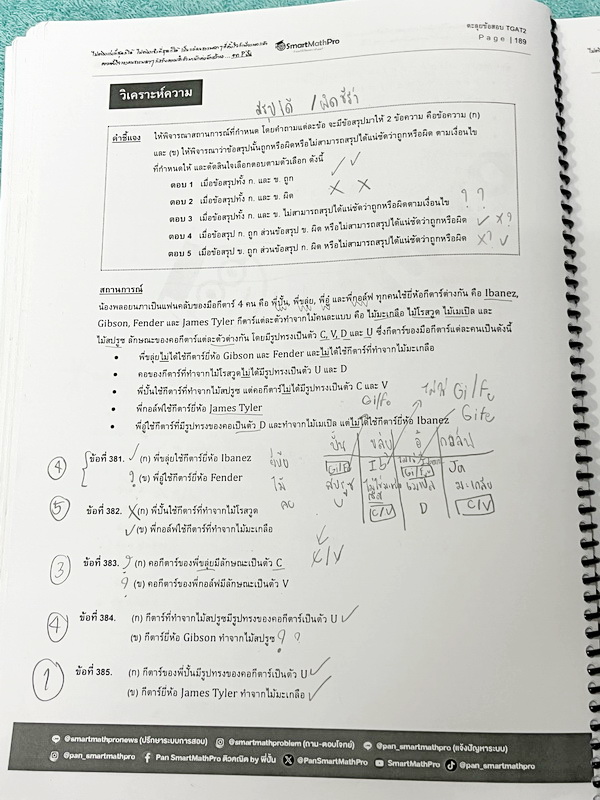 ตะลุยข้อสอบ TGAT2
SmartMathPro
Page | 189
วิเคราะห์ความ
สรุปได้ / ผิดชัวร์
คำชี้แจง ให้พิจารณาสถานการณ์ที่กำหนด โดยคำถามแต่ละข้อ จะมีข้อสรุปมาให้ 2 ข้อความ คือข้อความ (ก)
และ (ข) ให้พิจารณาว่าข้อสรุปนั้นถูกหรือผิดหรือไม่สามารถสรุปได้แน่ชัดว่าถูกหรือผิด ตามเงื่อนไข
ที่กำหนดให้ และตัดสินใจเลือกตอบตามตัวเลือก ดังนี้
ตอบ 1 เมื่อข้อสรุปทั้ง ก. และ ข. ถูก ✓ ✓
ตอบ 2 เมื่อข้อสรุปทั้ง ก. และ ข. ผิด X X
ตอบ 3 เมื่อข้อสรุปทั้ง ก. และ ข. ไม่สามารถสรุปได้แน่ชัดว่าถูกหรือผิดตามเงื่อนไข ? ?
ตอบ 4 เมื่อข้อสรุป ก. ถูก ส่วนข้อสรุป ข. ผิด หรือไม่สามารถสรุปได้แน่ชัดว่าถูกหรือผิด ✓ X?
ตอบ 5 เมื่อข้อสรุป ข. ถูก ส่วนข้อสรุป ก. ผิด หรือไม่สามารถสรุปได้แน่ชัดว่าถูกหรือผิด X? ✓
สถานการณ์
น้องพลอยนภาเป็นแฟนคลับของมือกีตาร์ 4 คน คือ พี่ปั้น, พี่ขลุ่ย, พี่อู๋ และพี่กอล์ฟ ทุกคนใช้ยี่ห้อกีตาร์ต่างกัน คือ Ibanez,
Gibson, Fender และ James Tyler กีตาร์แต่ละตัวทำจากไม้คนละแบบ คือ ไม้มะเกลือ ไม้โรสวูด ไม้เมเปิล และ
ไม้สปรูซ ลักษณะของคอกีตาร์แต่ละตัวต่างกัน โดยมีรูปทรงเป็นตัว C, V, D และ U ซึ่งกีตาร์ของมือกีตาร์แต่ละคนเป็นดังนี้
• พี่ขลุ่ยไม่ได้ใช้กีตาร์ยี่ห้อ Gibson และ Fender และไม่ได้ใช้กีตาร์ที่ทำจากไม้มะเกลือ
• คอของกีตาร์ที่ทำจากไม้โรสวูดไม่ได้มีรูปทรงเป็นตัว U และ D
• พี่ปั้นใช้กีตาร์ที่ทำจากไม้สปรูซ แต่คอกีตาร์ไม่ได้มีรูปทรงเป็นตัว C และ V
• พี่กอล์ฟใช้กีตาร์ยี่ห้อ James Tyler
• พี่อู๋ใช้กีตาร์ที่มีรูปทรงของคอเป็นตัว D และทำจากไม้เมเปิล แต่ไม่ได้ใช้กีตาร์ยี่ห้อ Ibanez
Gi/Fe
ปั้น ขลุ่ย อู๋ กอล์ฟ
ยี่ห้อ Gi/Fe Ib Gi/Fe Ja
ไม้ สปรูซ เมเปิล มะเกลือ
คอ U C/V D C/V
X/V
④ ข้อที่ 381. ✓ (ก) พี่ขลุ่ยใช้กีตาร์ยี่ห้อ Ibanez
? (ข) พี่อู๋ใช้กีตาร์ยี่ห้อ Fender
⑤ ข้อที่ 382. X (ก) พี่ปั้นใช้กีตาร์ที่ทำจากไม้โรสวูด
✓ (ข) พี่กอล์ฟใช้กีตาร์ที่ทำจากไม้มะเกลือ
③ ข้อที่ 383. ? (ก) คอกีตาร์ของพี่ขลุ่ยมีลักษณะเป็นตัว C
? (ข) คอกีตาร์ของพี่กอล์ฟมีลักษณะเป็นตัว V
④ ข้อที่ 384. (ก) กีตาร์ที่ทำจากไม้สปรูซมีรูปทรงของคอกีตาร์เป็นตัว U ✓
(ข) กีตาร์ยี่ห้อ Gibson ทำจากไม้สปรูซ ? ?
① ข้อที่ 385. (ก) กีตาร์ของพี่ปั้นมีรูปทรงของคอกีตาร์เป็นตัว U ✓
(ข) กีตาร์ยี่ห้อ James Tyler ทำจากไม้มะเกลือ ✓
@smartmathpronews (ปรึกษาระบบการสอบ) @smartmathproblem (ถาม-ตอบโจทย์) @pan_smartmathpro (แจ้งปัญหาระบบ)
@pan_smartmathpro Pan SmartMathPro ติวคณิต by พี่ปั้น @PanSmartMathPro SmartMathPro @pan_smartmathpro